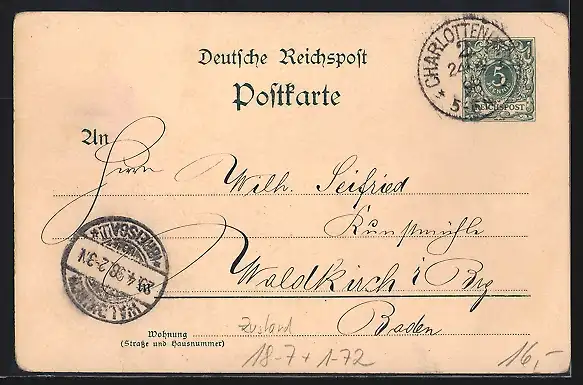 Deutsche Reichspost
Postkarte
CHARLOTTEN
24
5
REICHSPOST
An
Herrn Wilh. Seifried
Kunstmühle
Waldkirch i Brg
Baden
4.98.2-3N
Wohnung
(Straße und Hausnummer)
Zustand
18-7+1-72
16,-